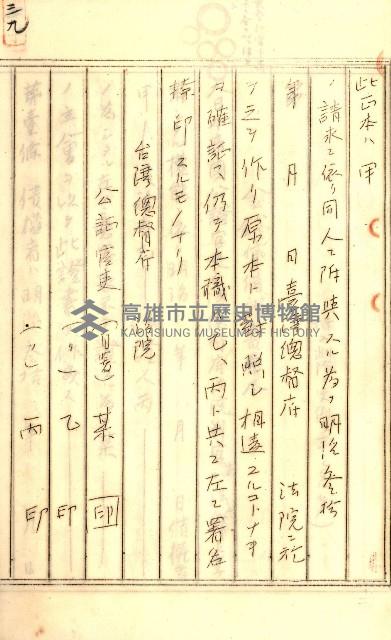 三九
此正本ハ甲
ノ請求ニ依リ同人ニ附與スル為メ明治参拾
年 月 日臺灣總督府 法院ニ於
テ之ヲ作リ原本ト對照シ相違ナルコトナキ
ヲ確証ス仍テ本職ハ乙、丙ト共ニ左ニ署名
捺印スルモノナリ
台湾總督府 法院
公証官吏(自署)某 印
(〃)乙 印
(〃)丙 印
高雄市立歷史博物館
KAOHSIUNG MUSEUM OF HISTORY